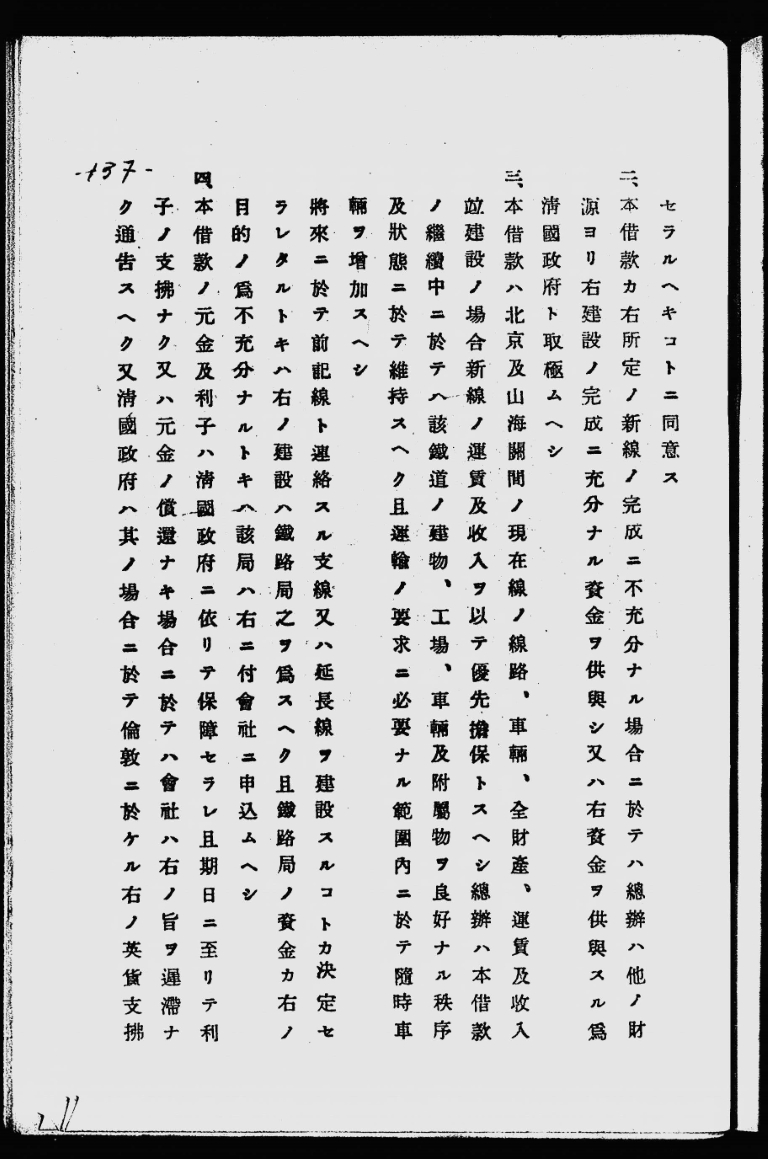 セラルヘキコトニ同意ス
二、本借款カ右所定ノ新線ノ完成ニ不充分ナル場合ニ於テハ總辦ハ他ノ財
源ヨリ右建設ノ完成ニ充分ナル資金ヲ供與シ又ハ右資金ヲ供與スル爲
淸國政府ト取極ムヘシ
三、本借款ハ北京及山海關間ノ現在線ノ線路、車輛、全財產、運賃及收入
竝建設ノ場合新線ノ運賃及收入ヲ以テ優先擔保トスヘシ總辦ハ本借款
ノ繼續中ニ於テハ該鐵道ノ建物、工場、車輛及附屬物ヲ良好ナル秩序
及狀態ニ於テ維持スヘク且運輸ノ要求ニ必要ナル範圍內ニ於テ隨時車
輛ヲ增加スヘシ
將來ニ於テ前記線ト連絡スル支線又ハ延長線ヲ建設スルコトカ決定セ
ラレタルトキハ右ノ建設ハ鐵路局之ヲ爲スヘク且鐵路局ノ資金カ右ノ
目的ノ爲不充分ナルトキハ該局ハ右ニ付會社ニ申込ムヘシ
四、本借款ノ元金及利子ハ淸國政府ニ依リテ保障セラレ且期日ニ至リテ利
子ノ支拂ナク又ハ元金ノ償還ナキ場合ニ於テハ會社ハ右ノ旨ヲ遲滯ナ
ク通告スヘク又淸國政府ハ其ノ場合ニ於テ倫敦ニ於ケル右ノ英貨支拂
-137-